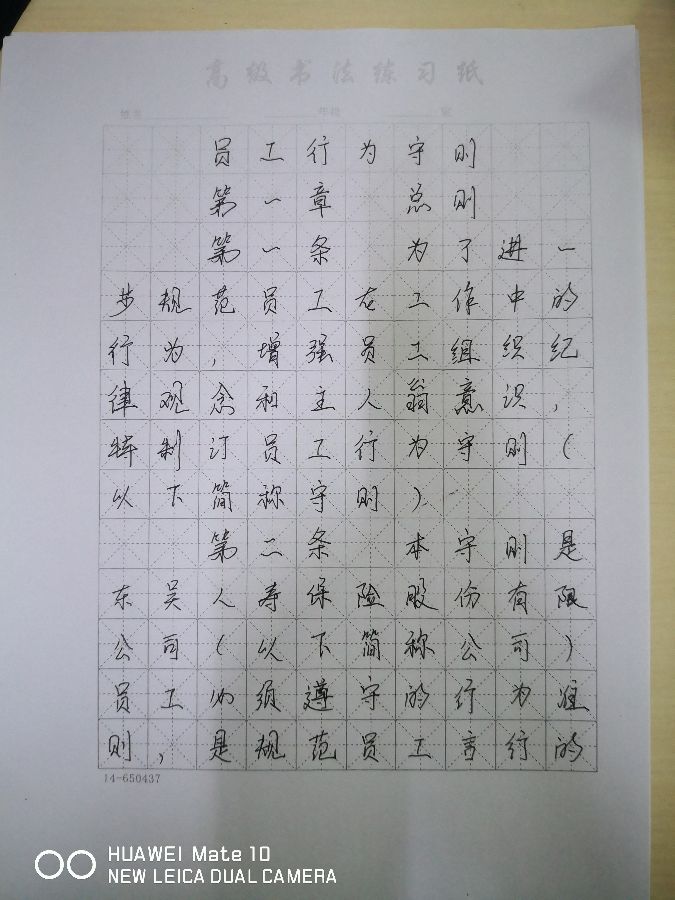 高级书法练习纸
姓名 年级 室
员工行为守则
第一章 总则
第一条 为了进一
步规范员工在工作中的
行为，增强员工组织纪
律观念和主人翁意识，
特制订员工行为守则（
以下简称守则）
第二条 本守则是
东吴人寿保险股份有限
公司（以下简称公司）
员工必须遵守的行为准
则，是规范员工言行的
14-650437
HUAWEI Mate 10
NEW LEICA DUAL CAMERA